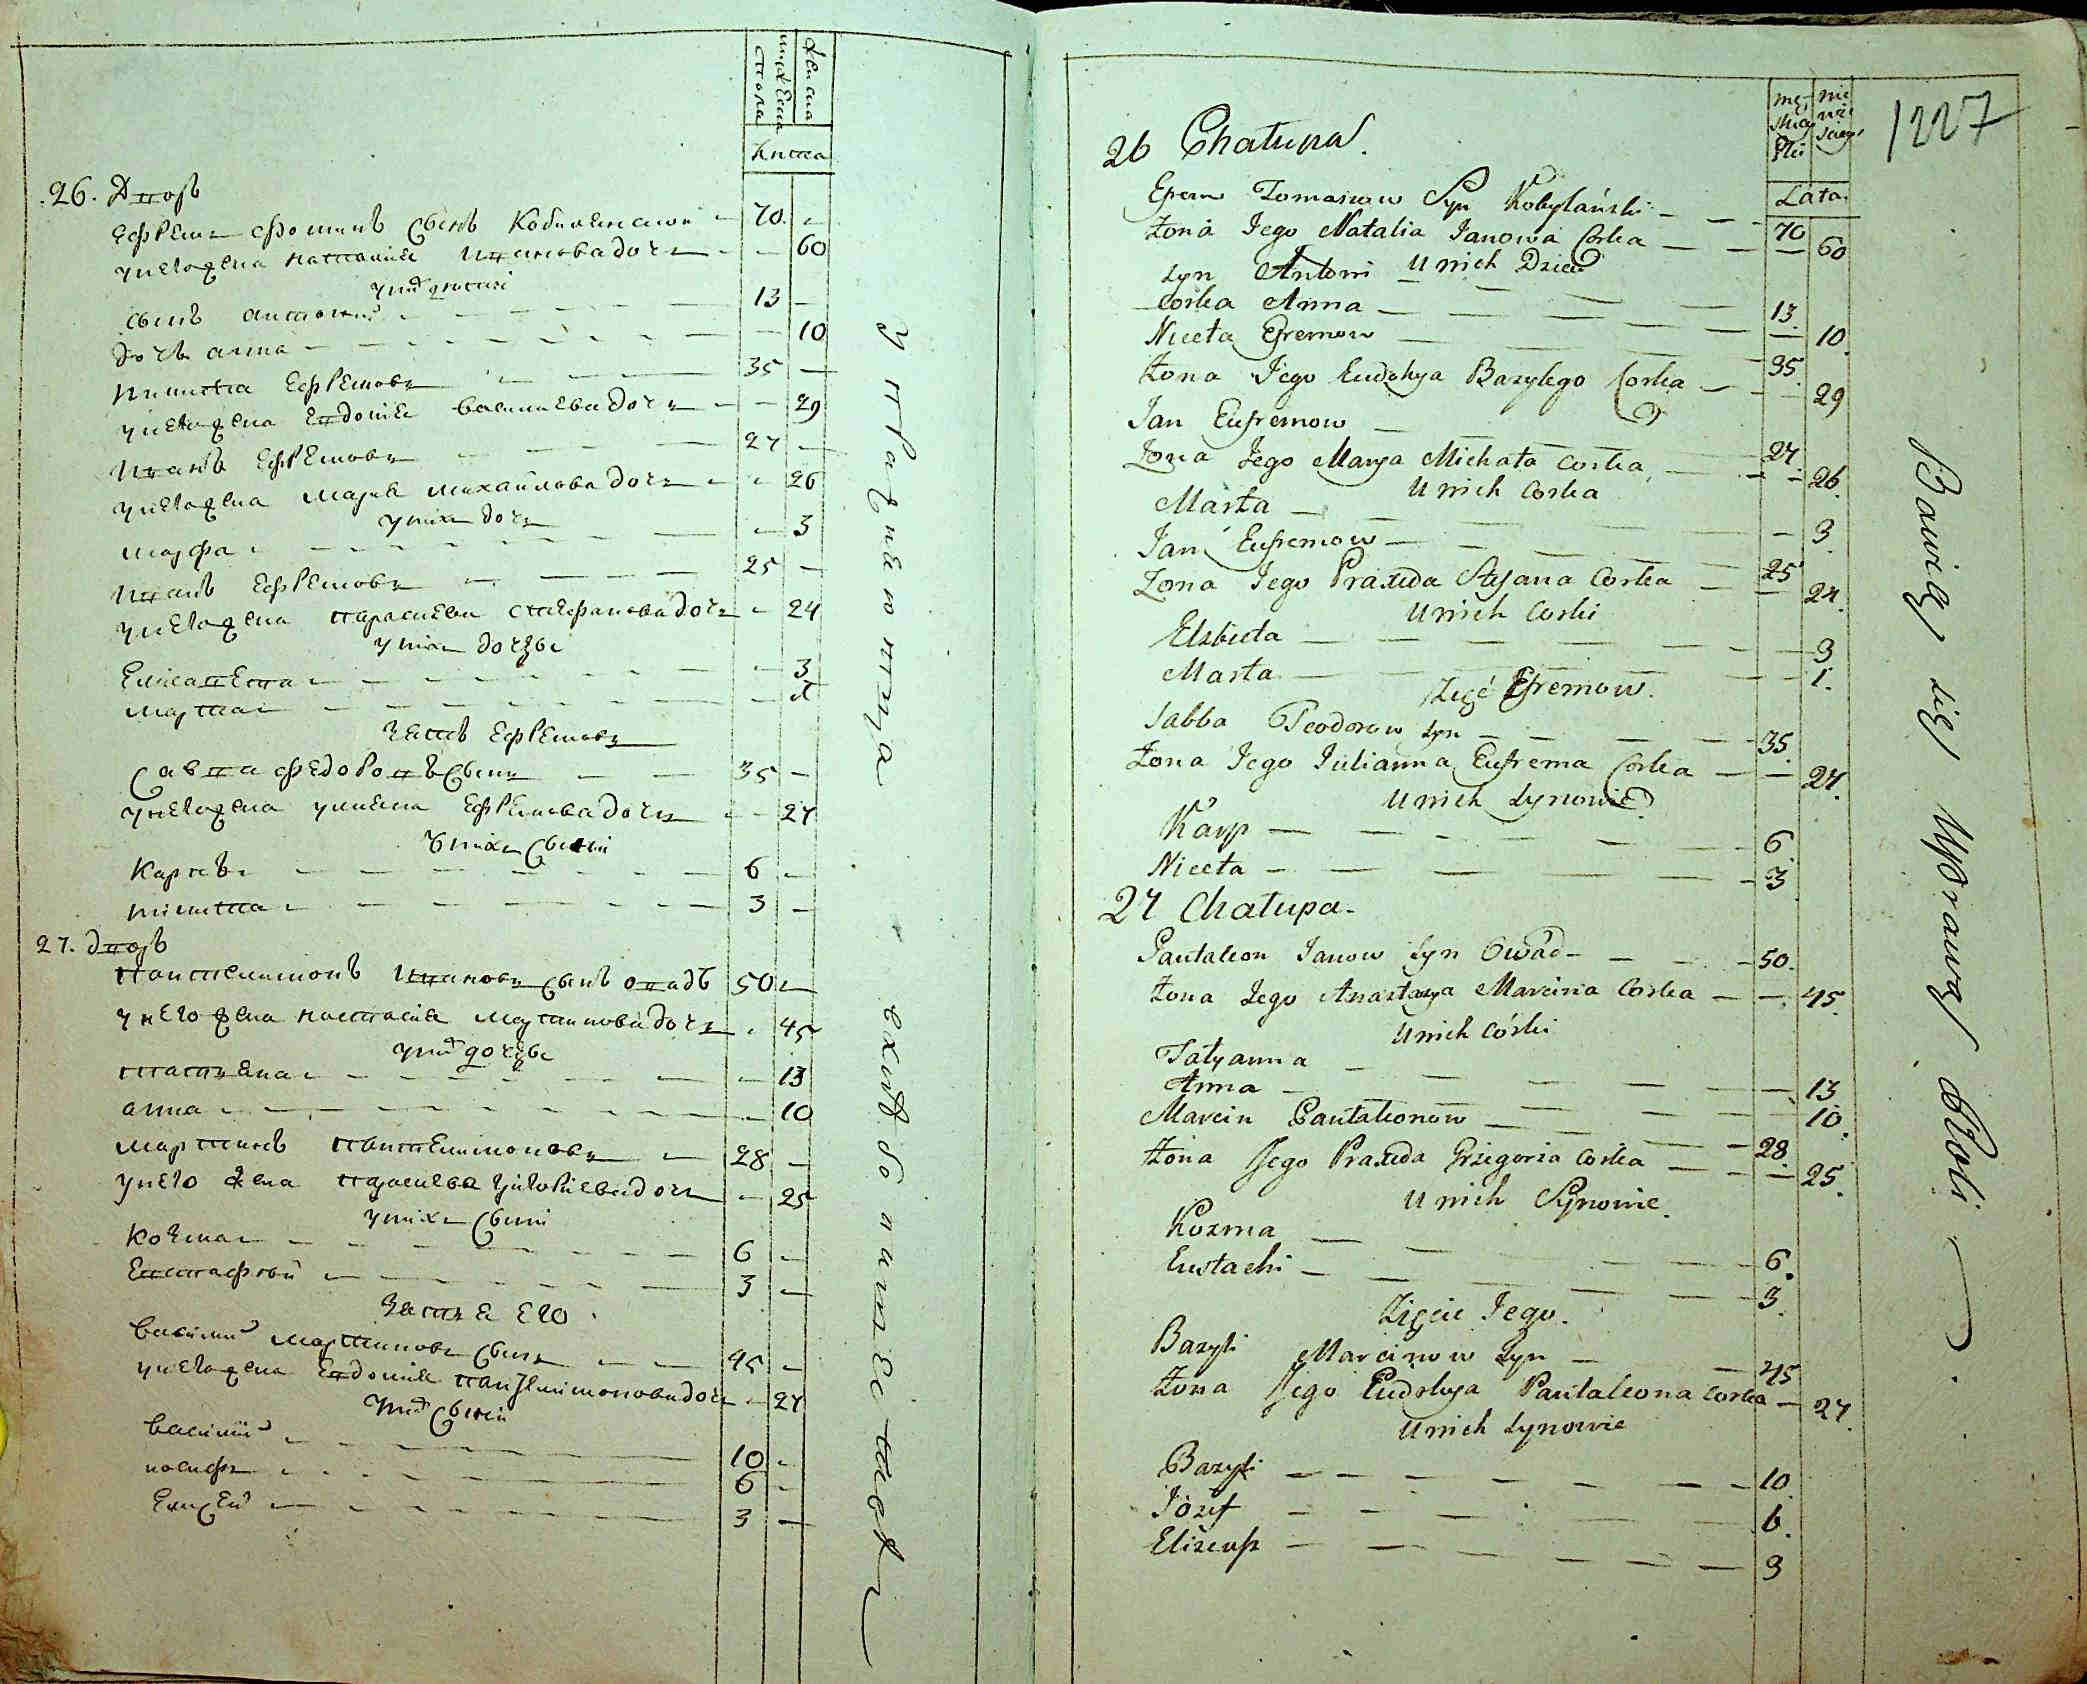 мужеска
пола
женска
Лита
26. Двор
Ефремъ Фоминъ сынъ Кобиленской 70
у него жена наталия Иванова дочъ 60
у них дети
сынъ антоний 13
дочь анна 10
никита Ефремовъ 35
у него жена Евдокия васильева дочъ 29
Иванъ Ефремовъ 27
у него жена Мария михайлова дочъ 26
у нихъ дочъ
марфа 3
Иванъ Ефремовъ 25
у него жена параскева стефанова дочъ 24
у нихъ дочери
Елисавета 3
марта 1
Зять Ефремовъ
Савва федоровъ сынъ 35
у него жена улиена Ефремова дочъ 27
У нихъ Сыни
Карпъ 6
никита 3
27. двор
пантелимонъ Ивановъ сынъ овадъ 50
у него жена настасия мартинова дочъ 45
у них дочери
татиена 13
анна 10
мартинъ пантелимоновъ 28
у него жена параскева григориева дочъ 25
у нихъ Сыни
Козма 6
Евстафий 3
Зять Его
василий мартиновъ сынъ 45
у него жена Евдокия пантелимонова дочъ 27
у них Сыни
василий 10
иосифъ 6
Елисей 3
упражняются
в хлебопашество
męskiej
Płci
Lata
1227
26 Chałupa
Efrem Tomaszow Syn Kobylański 70
Żona Jego Natalia Janowa Corka 60
U nich Dzieci
Syn Antoni 13.
Corka Anna 10.
Niceta Efremow 35.
Żona Jego Eudokya Bazylego Corka 29
Jan Eufremow 27.
Żona Jego Marya Michała Corka 26.
U nich Corka
Marta 3.
Jan Eufremow 25
Żona Jego Praxeda Stefana Corka 24.
U nich Corki
Elzbieta 3
Marta 1.
Zięć Efremow.
Sabba Teodorow Syn 35.
Żona Jego Julianna Eufrema Corka 27.
U nich Synowie
Karp 6.
Niceta 3
27 Chałupa
Pantaleon Janow Syn Owad 50.
Żona Jego Anastazya Marcina Corka 45.
U nich Córki
Tatyanna 13
Anna 10.
Marcin Pantaleonow 28.
Żona Jego Praxeda Grzegorza Corka 25.
U nich Synowie.
Kozma 6.
Eustachi 3.
Zięcie Jego.
Bazyli Marcinow Syn 45
Żona Jego Eudokya Pantaleona Corka 27.
U nich Synowie
Bazyli 10.
Józef 6.
Elizeusz 3
Bawią się Uprawą Roli.